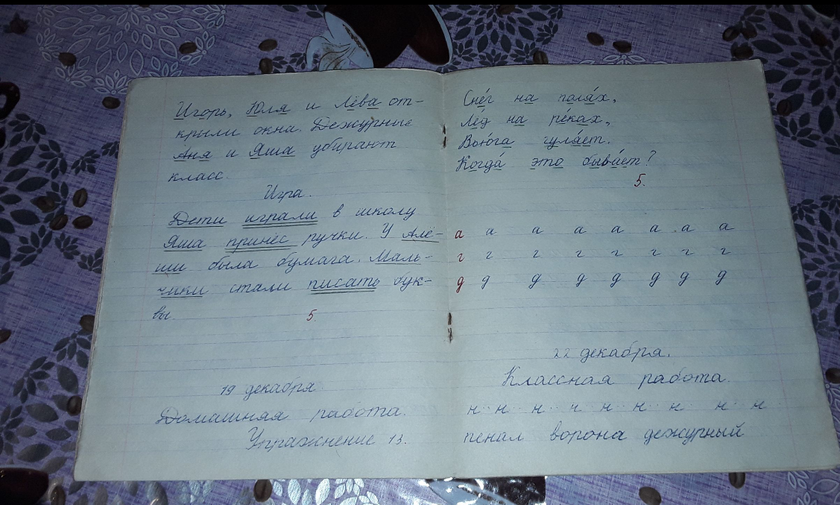 Игорь, Юля и Лёва от-
крыли окна. Дежурные
Аня и Яша убирают
класс.
Игра.
Дети играли в школу
Яша принёс ручки. У Але-
ши была бумага. Маль-
чики стали писать бук-
вы.
5.
19 декабря.
Домашняя работа.
Упражнение 13.
Снег на полях,
Лёд на реках,
Вьюга гуляет.
Когда это бывает?
5.
а а а а а а а а
г г г г г г г г
д д д д д д д д
22 декабря.
Классная работа.
н н н н н н н н
пенал ворона дежурный